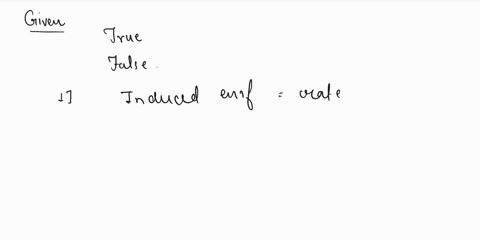 Given
True
False.
1] Induced emf = rate